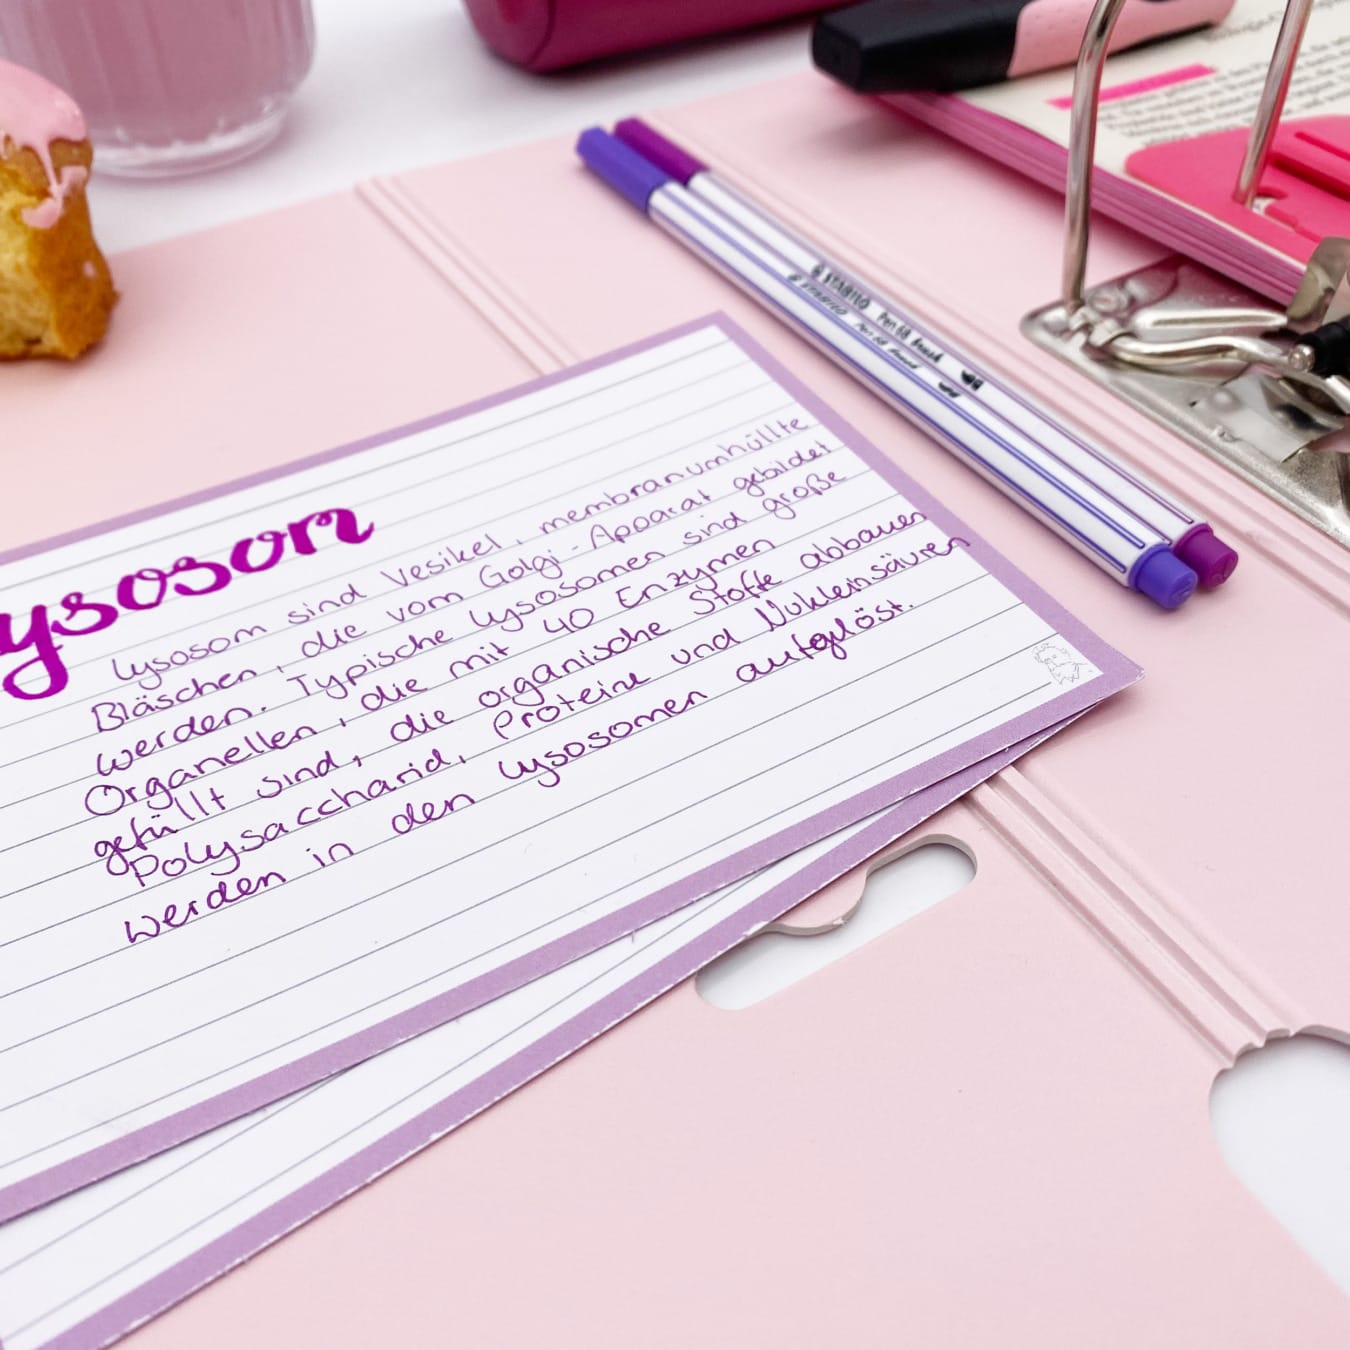 ysoson
Lysosom sind Vesikel, membranumhüllte
Bläschen, die vom Golgi-Apparat gebildet
werden. Typische Lysosomen sind große
Organellen, die mit 40 Enzymen
gefüllt sind, die organische Stoffe abbauen
Polysaccharid, Proteine und Nukleinsäuren
werden in den Lysosomen aufgelöst.
STABILO Pen 68 brush
STABILO Pen 68 brush